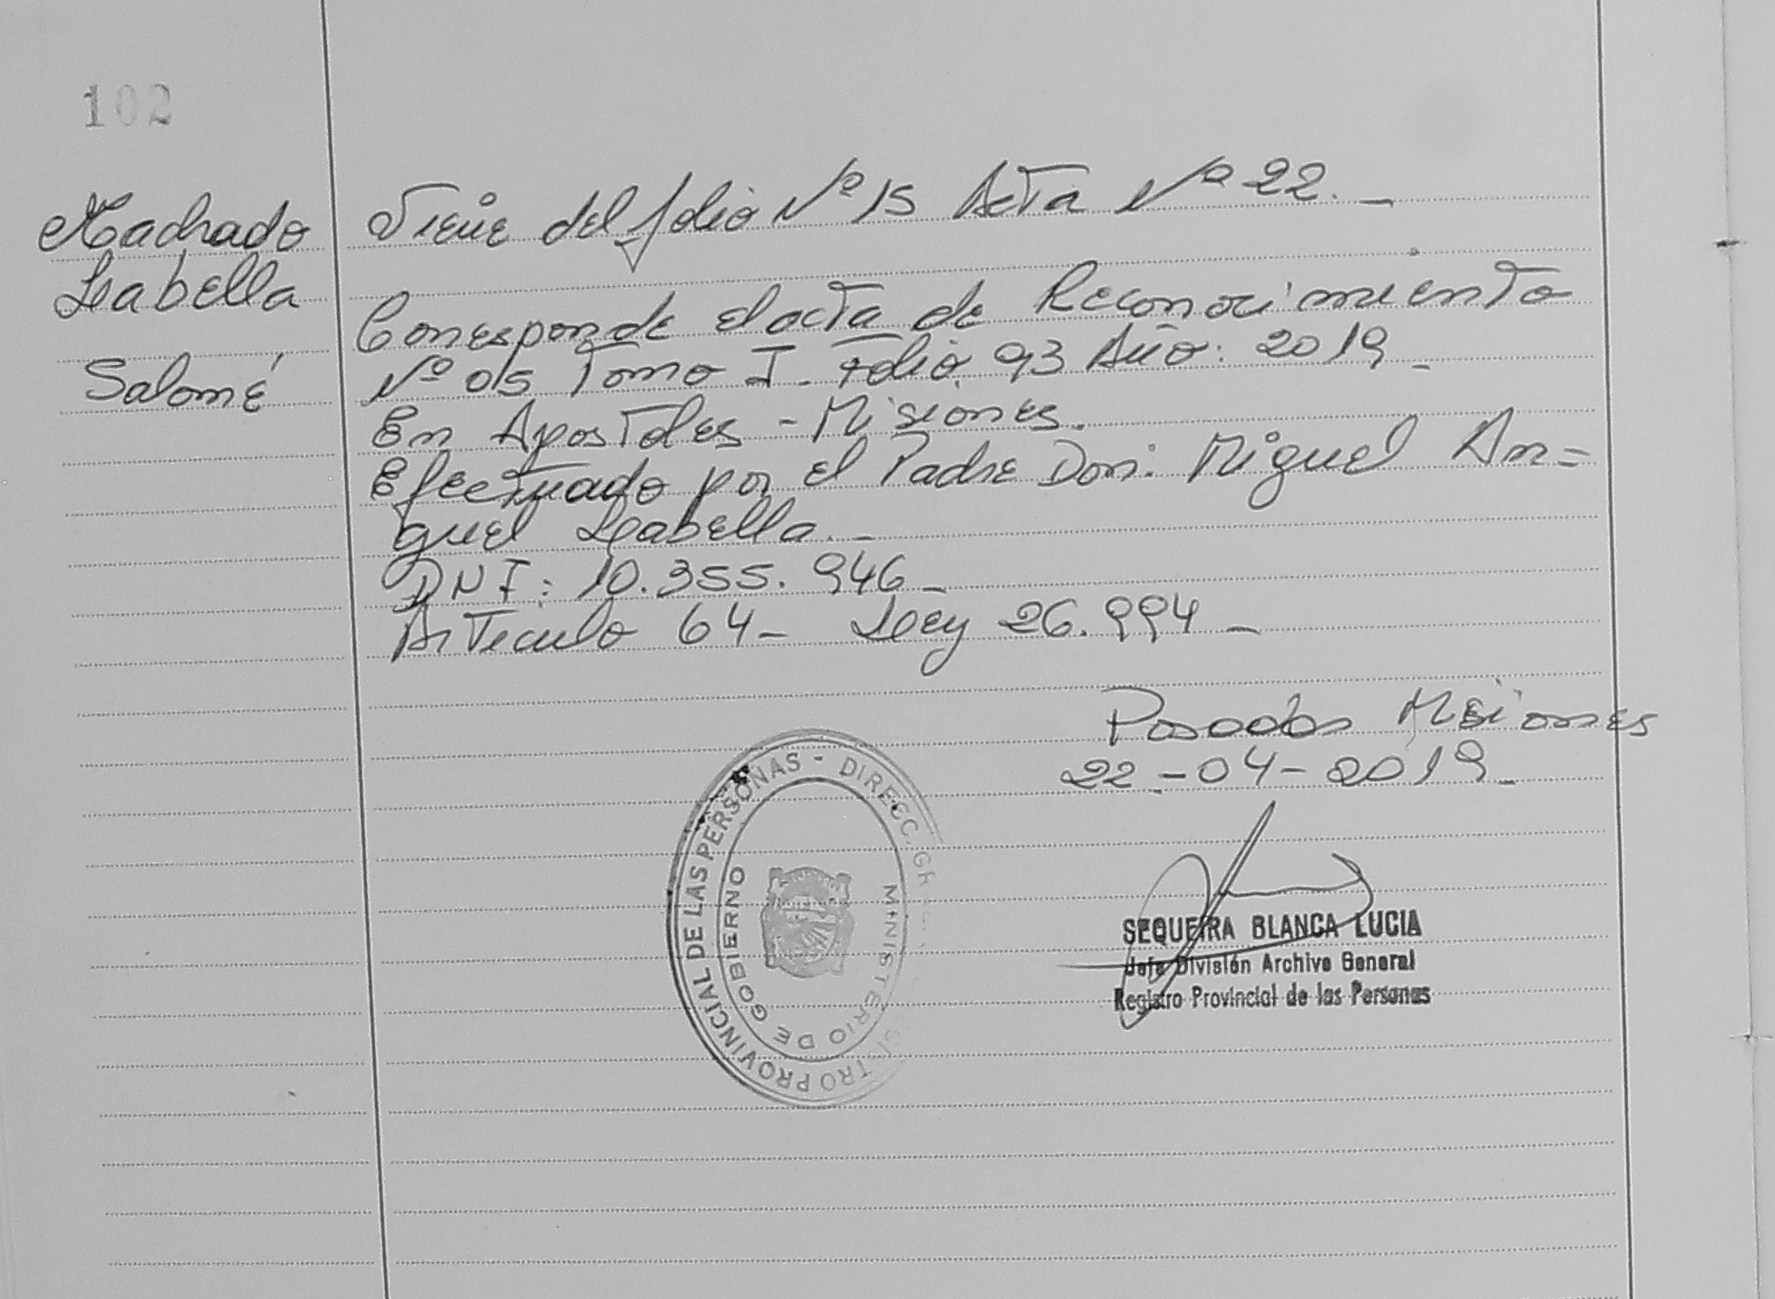 102
Machado
Leabella
Salomé
Viene del folio Nº 15 Acta Nº 22.-
Corresponde el acta de Reconocimiento
Nº 05 Tomo I. Folio 93 Año: 2019-
En Apostoles - Misiones.
Efectuado por el Padre Don: Miguel An=
guel Leabella.-
DNI: 10.355.946-
Articulo 64- Ley 26.994-
Posadas Misiones
22-04-2019-
REGISTRO PROVINCIAL DE LAS PERSONAS - DIRECC. GR
MINISTERIO DE GOBIERNO
SEQUEIRA BLANCA LUCIA
Jefe División Archivo General
Registro Provincial de las Personas